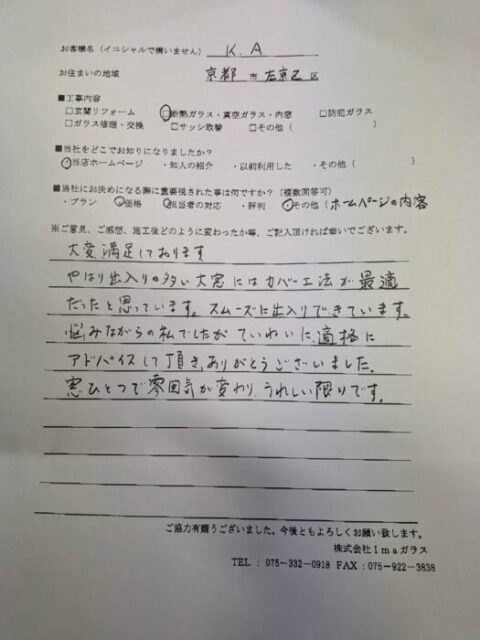 お客様名（イニシャルで構いません） K.A
お住まいの地域 京都 市 左京区 区
■工事内容
□玄関リフォーム □断熱ガラス・真空ガラス・内窓 □防犯ガラス
□ガラス修理・交換 □サッシ取替 □その他（ ）
■当社をどこでお知りになりましたか？
・当店ホームページ ・知人の紹介 ・以前利用した ・その他（ ）
■当社にお決めになる際に重要視された事は何ですか？（複数回答可）
・プラン ・価格 ・担当者の対応 ・評判 ・その他（ホームページの内容
※ご意見、ご感想、施工後どのように変わったか等、ご記入頂ければ幸いでございます。
大変満足しております
やはり出入りの多い大窓にはカバー工法が最適
だったと思っています。スムーズに出入りできています。
悩みながらの私でしたが ていねいに、適格に
アドバイスして頂き、ありがとうございました。
窓ひとつで雰囲気が変わり、うれしい限りです。
ご協力有難うございました。今後ともよろしくお願い致します。
株式会社Imaガラス
TEL：075-332-0918 FAX：075-922-3838